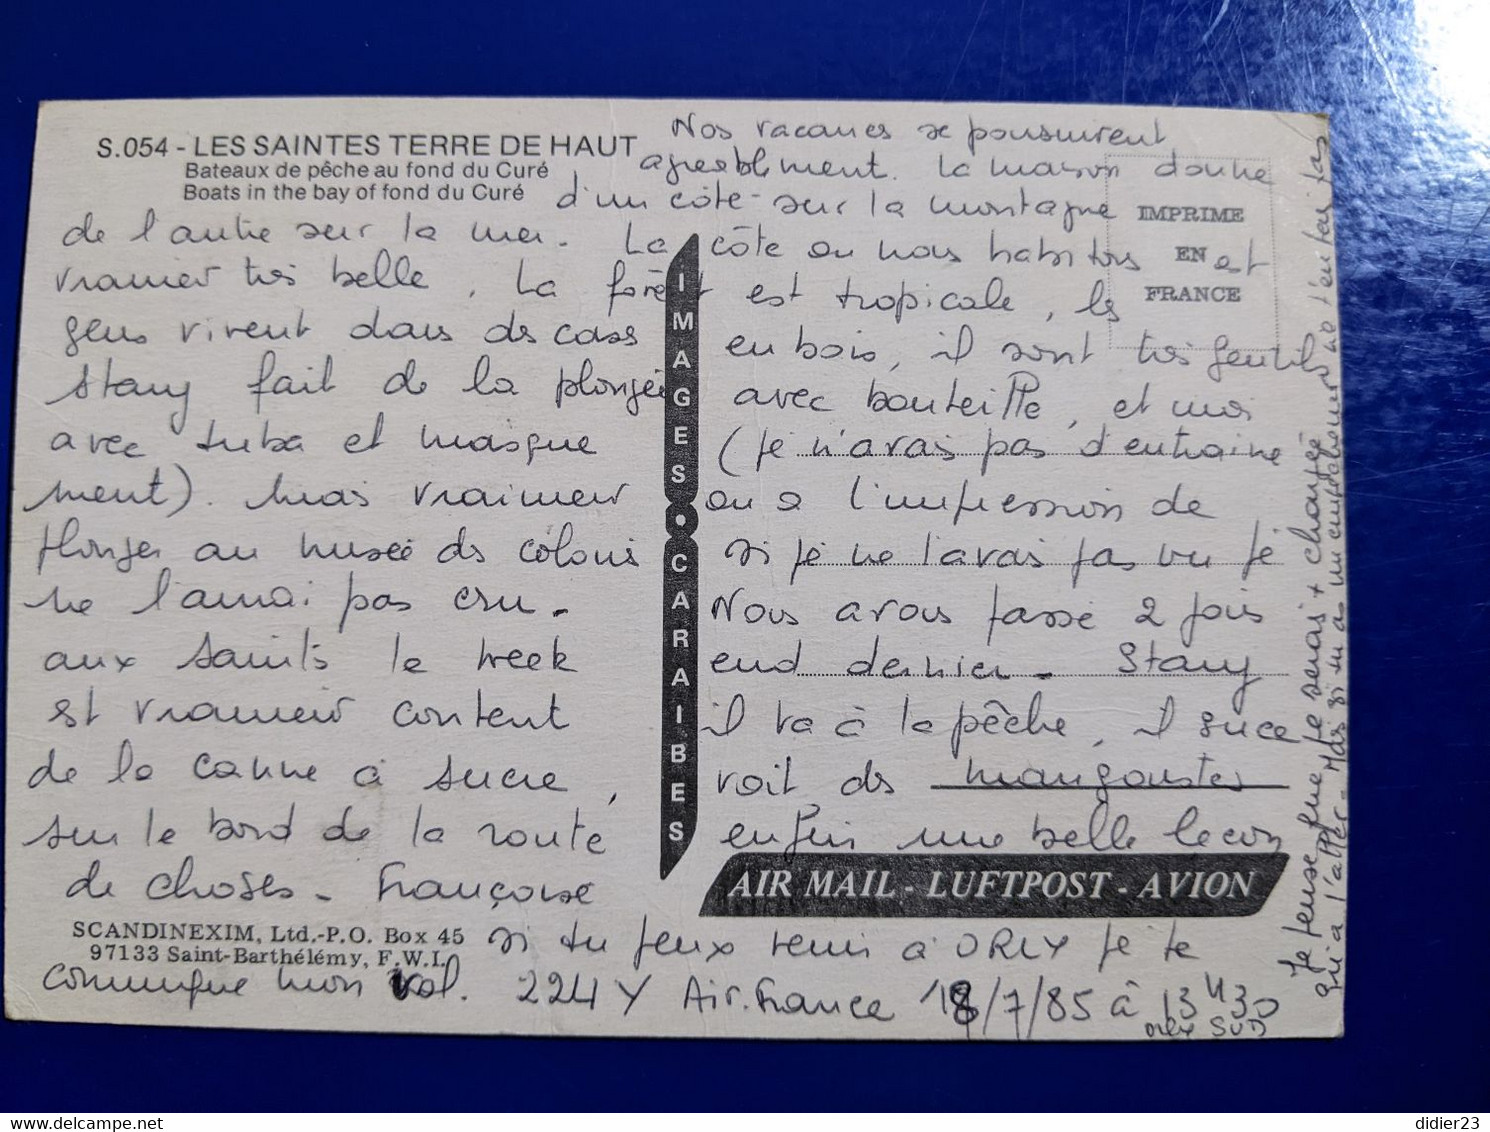 S.054 - LES SAINTES TERRE DE HAUT
Bateaux de pêche au fond du Curé
Boats in the bay of fond du Curé
Nos vacances se poursuivent
agreablement. La maison donne
d'un côté sur la montagne
de l'autre sur la mer. La côte ou nous habitons est
vraimer très belle, La forêt est tropicale, les
gens vivent dans des cases en bois, il sont très gentils
Stany fait de la plongée avec bouteille, et moi
avec tuba et masque (je n'avais pas d'entraine
ment). Mais vraimeur on a l'impression de
plonger au musée des colonis si je ne l'avais pas vu je
ne l'aurai pas cru. Nous avons passé 2 fois
aux saints le week end dernier. Stany
est vraimeur content il va à la pêche, il suce
de la canne à sucre, voit des mangoustes
sur le bord de la route enfin une belle leçon
de choses. Françoise
IMPRIME
EN
FRANCE
IMAGES • CARAIBES
AIR MAIL - LUFTPOST - AVION
SCANDINEXIM, Ltd.-P.O. Box 45
97133 Saint-Barthélémy, F.W.I.
si tu peux venir à ORLY je te
communique mon vol. 224Y Air.France 18/7/85 à 13H30
ORLY SUD
Je pense que je serais + chargée
qu'à l'aller. Mais si tu as un empêchement ne t'en fais pas
didier23